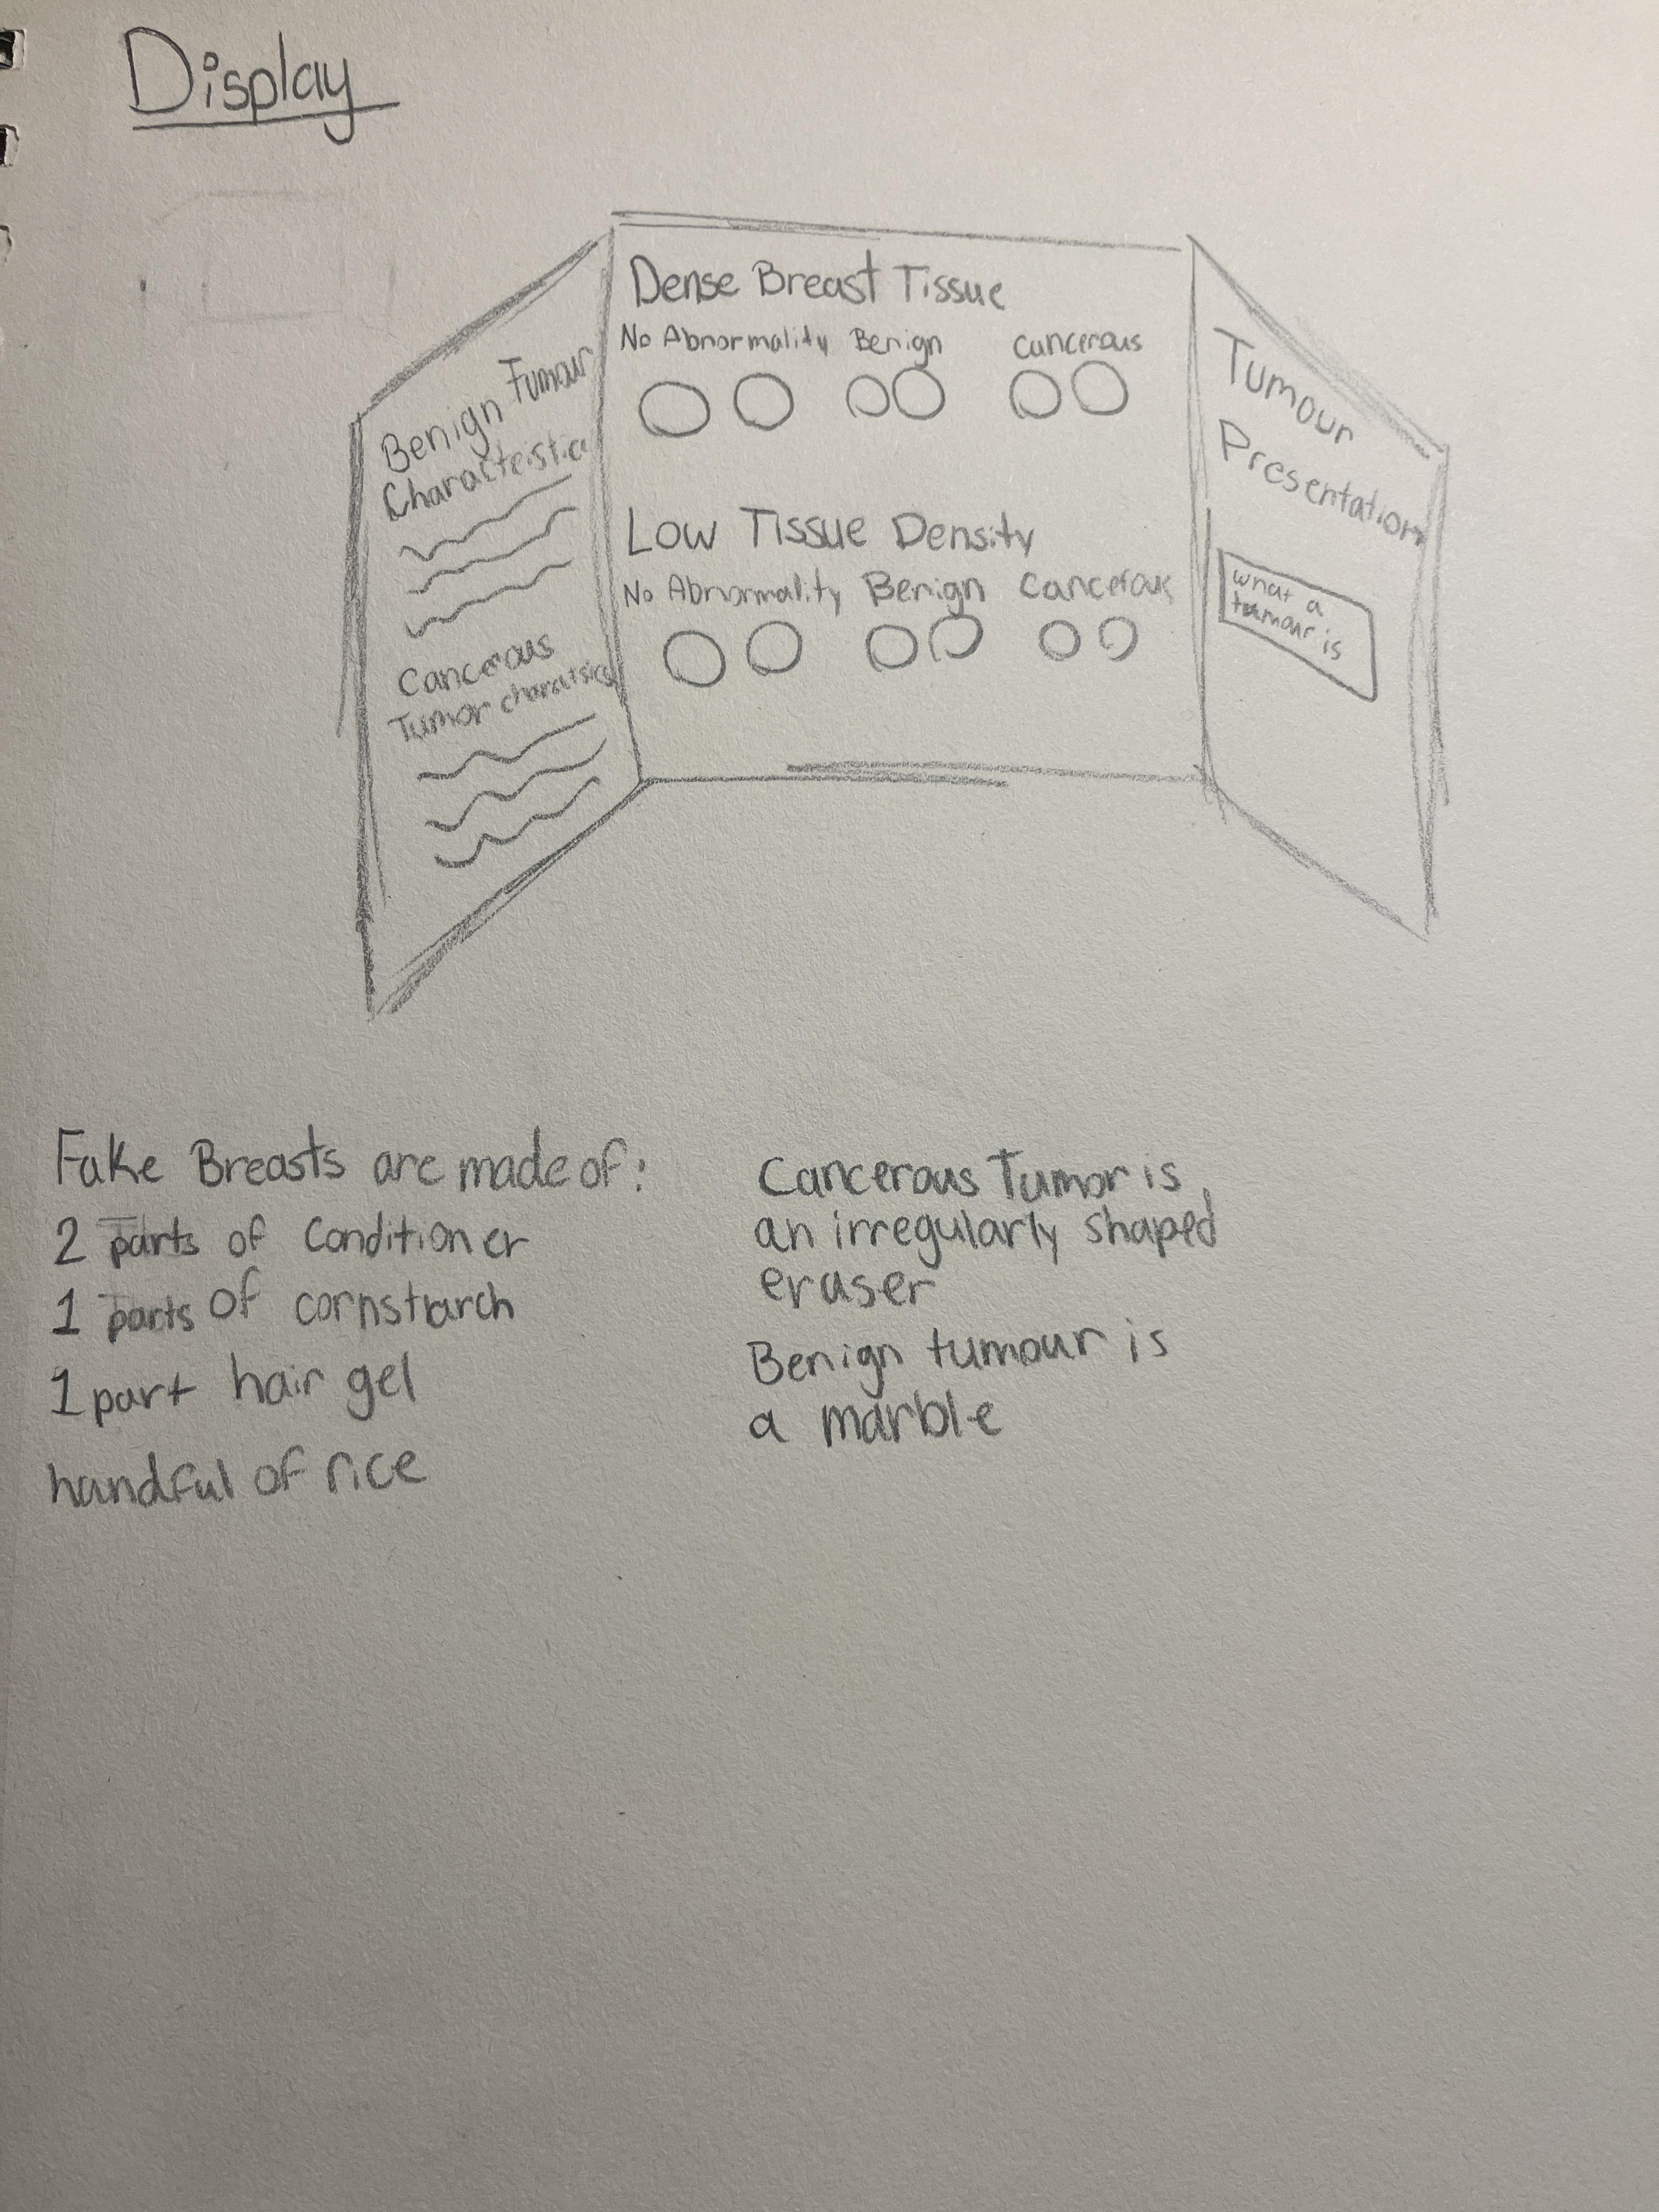 Display
Benign Tumour
Characteristics
Cancerous
Tumor
Dense Breast Tissue
No Abnormality Benign Cancerous
Low Tissue Density
No Abnormality Benign Cancerous
Tumour
Presentation
what a
tumour is
Fake Breasts are made of:
2 parts of Conditioner
1 parts of cornstarch
1 part hair gel
handful of rice
Cancerous Tumor is
an irregularly shaped
eraser
Benign tumour is
a marble